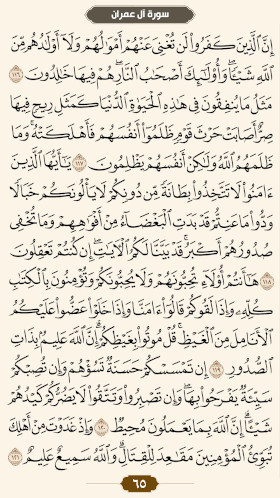 سورة آل عمران
إِنَّ ٱلَّذِينَ كَفَرُوا۟ لَن تُغْنِىَ عَنْهُمْ أَمْوَٰلُهُمْ وَلَآ أَوْلَـٰدُهُم مِّنَ
ٱللَّهِ شَيْـًٔا ۖ وَأُو۟لَـٰٓئِكَ أَصْحَـٰبُ ٱلنَّارِ ۚ هُمْ فِيهَا خَـٰلِدُونَ ١١٦
مَثَلُ مَا يُنفِقُونَ فِى هَـٰذِهِ ٱلْحَيَوٰةِ ٱلدُّنْيَا كَمَثَلِ رِيحٍ فِيهَا
صِرٌّ أَصَابَتْ حَرْثَ قَوْمٍ ظَلَمُوٓا۟ أَنفُسَهُمْ فَأَهْلَكَتْهُ ۚ وَمَا
ظَلَمَهُمُ ٱللَّهُ وَلَـٰكِنْ أَنفُسَهُمْ يَظْلِمُونَ ١١٧ يَـٰٓأَيُّهَا ٱلَّذِينَ
ءَامَنُوا۟ لَا تَتَّخِذُوا۟ بِطَانَةً مِّن دُونِكُمْ لَا يَأْلُونَكُمْ خَبَالًا
وَدُّوا۟ مَا عَنِتُّمْ قَدْ بَدَتِ ٱلْبَغْضَآءُ مِنْ أَفْوَٰهِهِمْ وَمَا تُخْفِى
صُدُورُهُمْ أَكْبَرُ ۚ قَدْ بَيَّنَّا لَكُمُ ٱلْـَٔايَـٰتِ ۖ إِن كُنتُمْ تَعْقِلُونَ
١١٨ هَـٰٓأَنتُمْ أُو۟لَآءِ تُحِبُّونَهُمْ وَلَا يُحِبُّونَكُمْ وَتُؤْمِنُونَ بِٱلْكِتَـٰبِ
كُلِّهِۦ وَإِذَا لَقُوكُمْ قَالُوٓا۟ ءَامَنَّا وَإِذَا خَلَوْا۟ عَضُّوا۟ عَلَيْكُمُ
ٱلْأَنَامِلَ مِنَ ٱلْغَيْظِ ۚ قُلْ مُوتُوا۟ بِغَيْظِكُمْ ۗ إِنَّ ٱللَّهَ عَلِيمٌۢ بِذَاتِ
ٱلصُّدُورِ ١١٩ إِن تَمْسَسْكُمْ حَسَنَةٌ تَسُؤْهُمْ وَإِن تُصِبْكُمْ
سَيِّئَةٌ يَفْرَحُوا۟ بِهَا ۖ وَإِن تَصْبِرُوا۟ وَتَتَّقُوا۟ لَا يَضُرُّكُمْ كَيْدُهُمْ
شَيْـًٔا ۗ إِنَّ ٱللَّهَ بِمَا يَعْمَلُونَ مُحِيطٌ ١٢٠ وَإِذْ غَدَوْتَ مِنْ أَهْلِكَ
تُبَوِّئُ ٱلْمُؤْمِنِينَ مَقَـٰعِدَ لِلْقِتَالِ ۗ وَٱللَّهُ سَمِيعٌ عَلِيمٌ ١٢١
٦٥